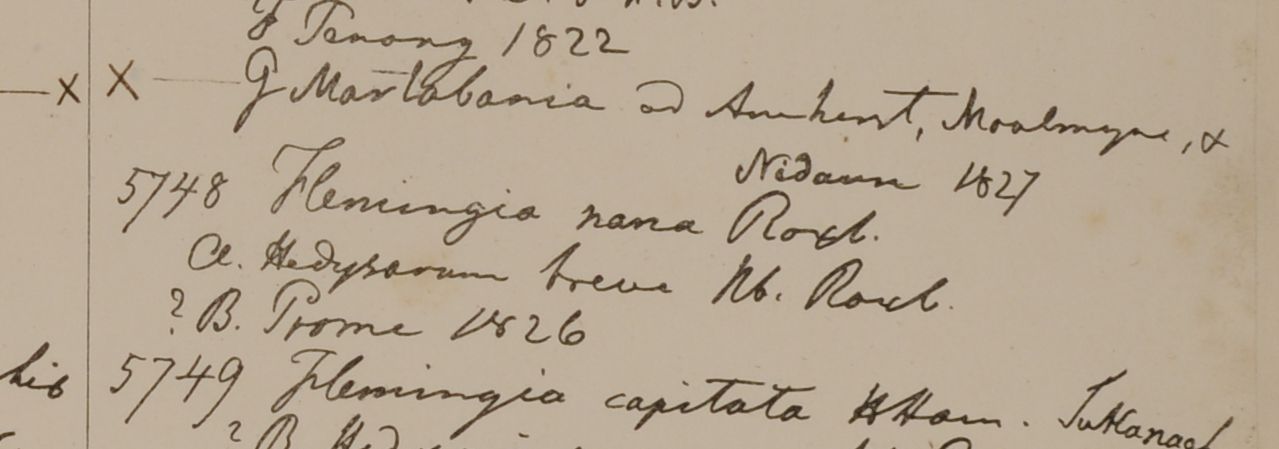 F Penang 1822
x X G Martabania ad Amherst, Moalmeyne, &
Nidaun 1827
5748 Flemingia nana Roxb.
a. Hedysarum breve Hb. Roxb.
? B. Prome 1826
hib 5749 Flemingia capitata HHam.
? B